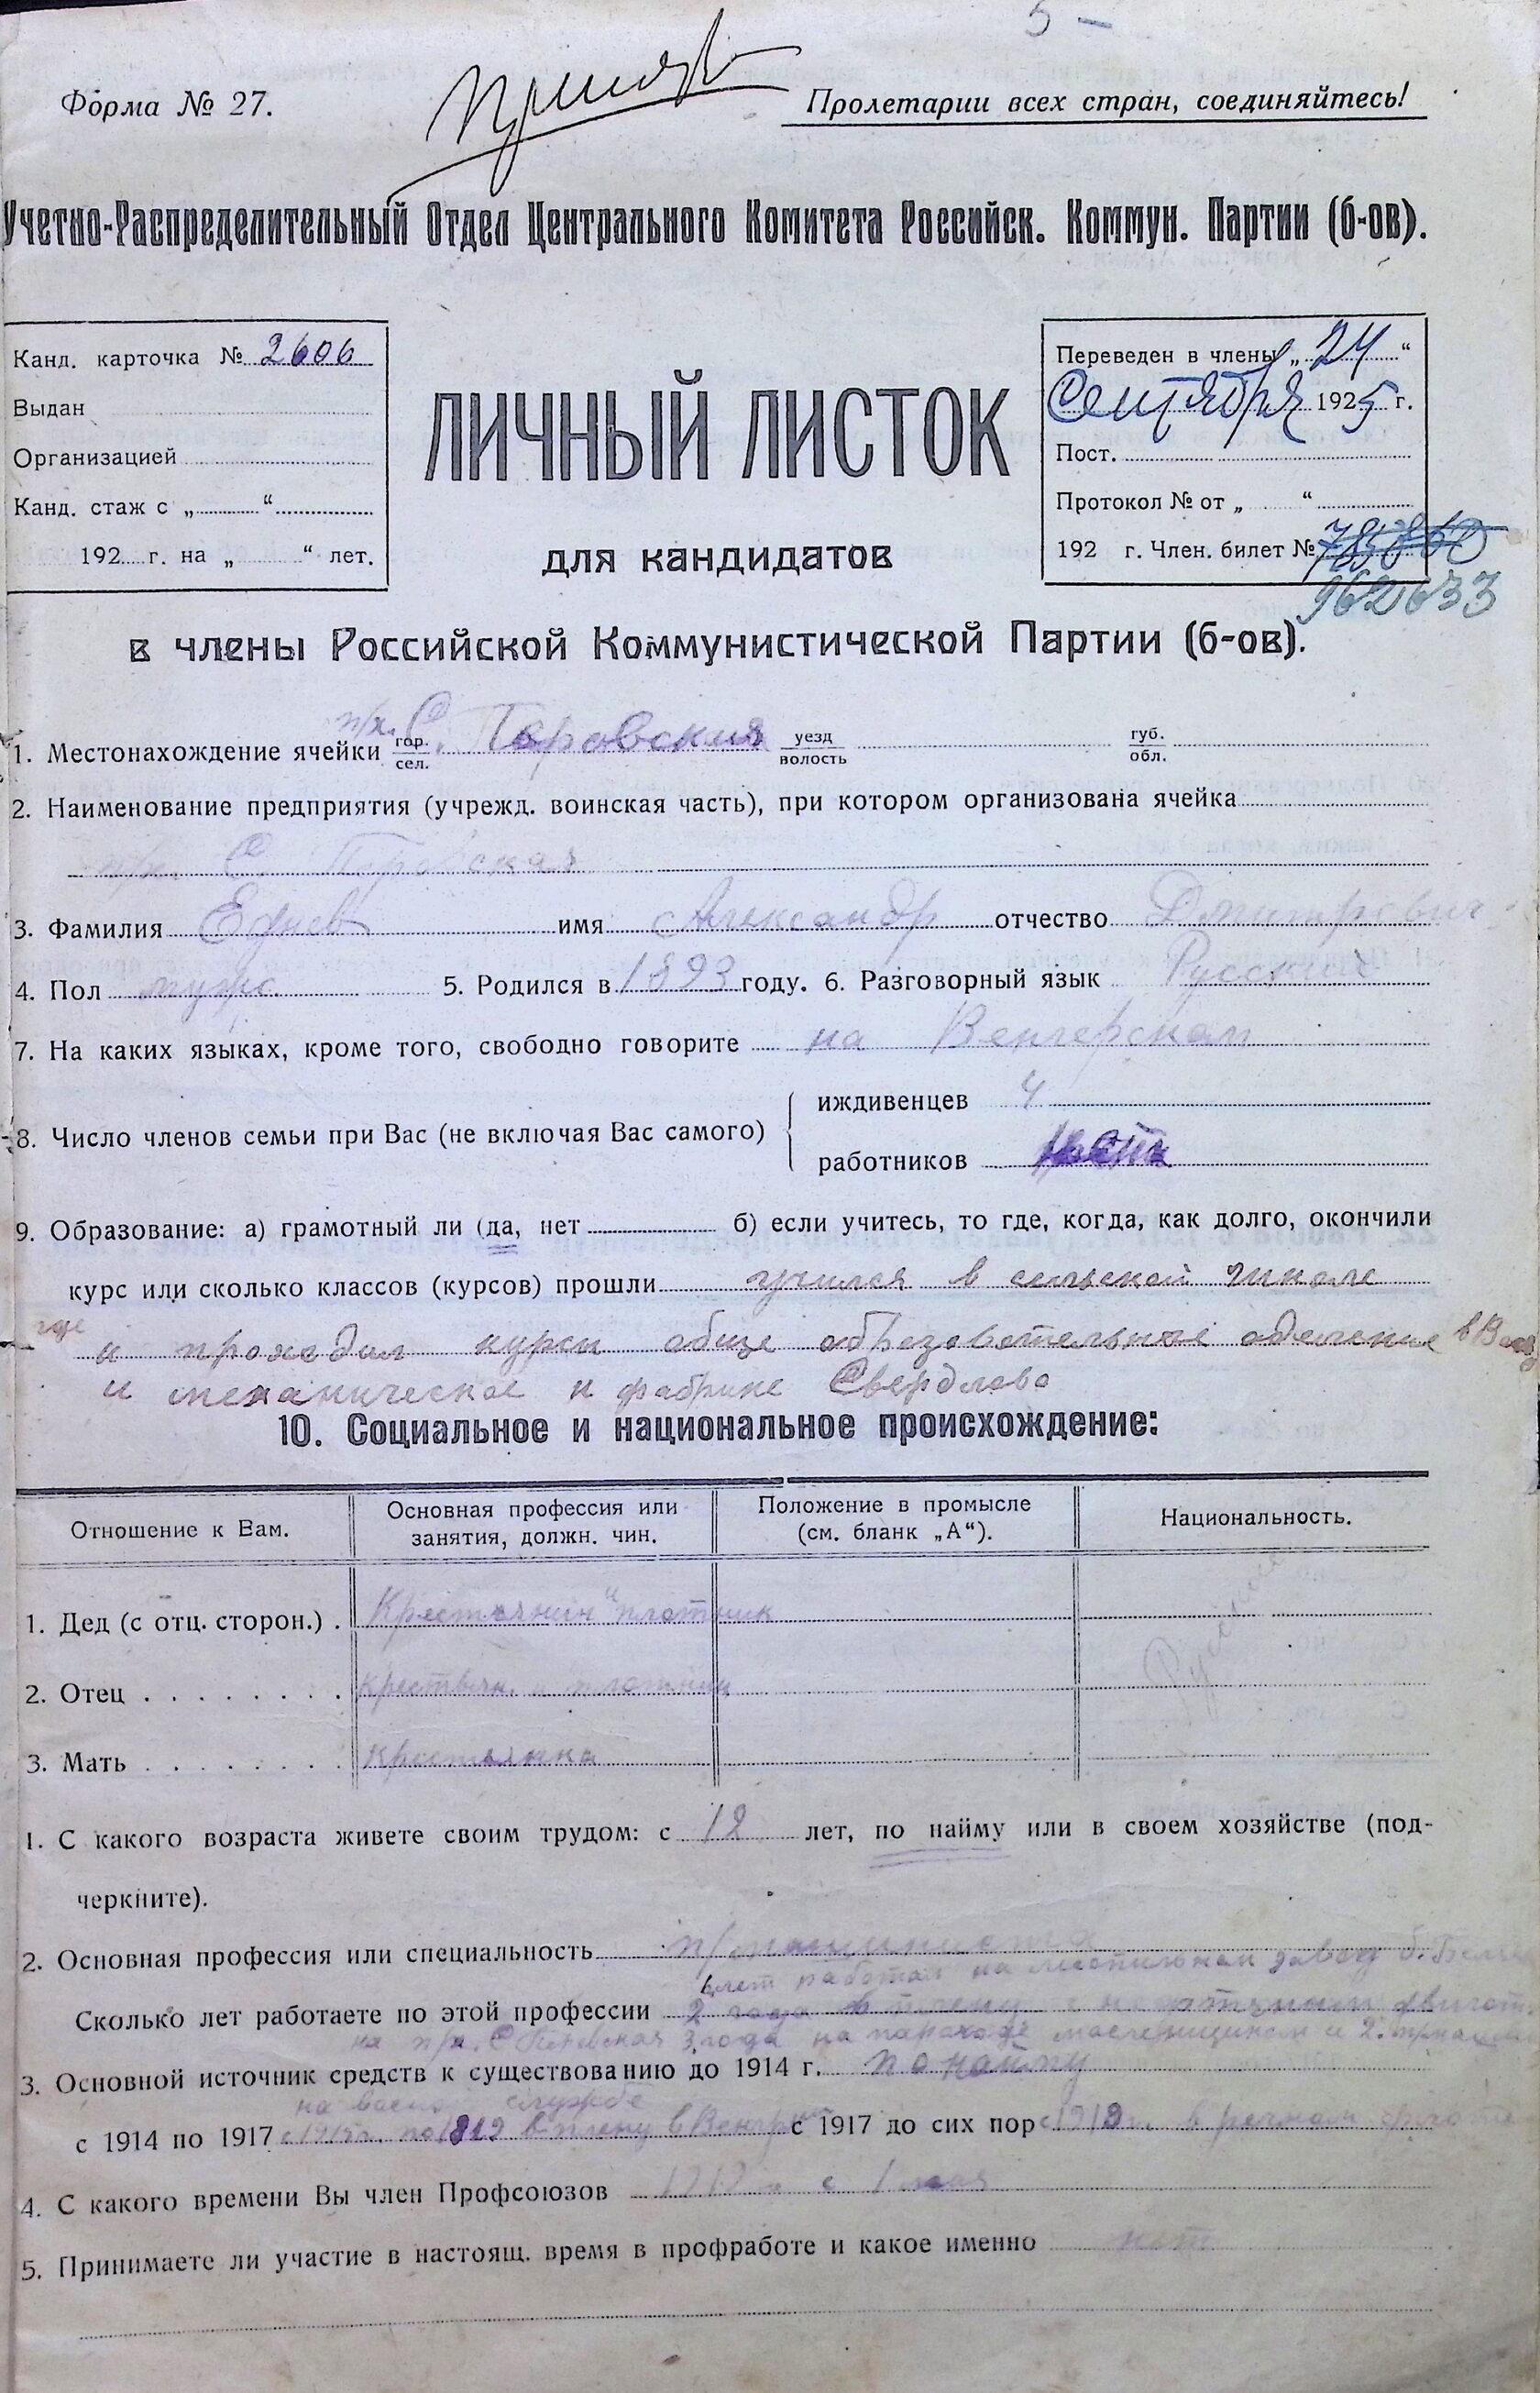 5 —
Форма № 27.
Пролетарии всех стран, соединяйтесь!
Учетно-Распределительный Отдел Центрального Комитета Российск. Коммун. Партии (б-ов).
Канд. карточка № 2606
Выдан
Организацией
Канд. стаж с „ “
192 г. на „ “ лет.
ЛИЧНЫЙ ЛИСТОК
для кандидатов
Переведен в члены „ 24 “
Сентября 1925 г.
Пост.
Протокол № от „ “
192 г. Член. билет №
962633
в члены Российской Коммунистической Партии (б-ов).
1. Местонахождение ячейки гор. сел. п/х. С. Перовская уезд волость губ. обл.
2. Наименование предприятия (учрежд. воинская часть), при котором организована ячейка
С. Перовская
3. Фамилия имя Александр отчество
4. Пол муж. 5. Родился в 1893 году. 6. Разговорный язык Русский
7. На каких языках, кроме того, свободно говорите на Венгерском
8. Число членов семьи при Вас (не включая Вас самого)
иждивенцев 4
работников
9. Образование: а) грамотный ли (да, нет б) если учитесь, то где, когда, как долго, окончили
курс или сколько классов (курсов) прошли учился в сельской школе
и проходил курсы обще образовательные
и механическое и фабрике Свердлова
10. Социальное и национальное происхождение:
Отношение к Вам.
Основная профессия или занятия, должн. чин.
Положение в промысле (см. бланк „А“).
Национальность.
1. Дед (с отц. сторон.) . Крестьянин и плотник
2. Отец . . . . . . . . крестьян. и плотник
3. Мать . . . . . . . . крестьянка
1. С какого возраста живете своим трудом: с 12 лет, по найму или в своем хозяйстве (под-
черкните).
2. Основная профессия или специальность п/машиниста
лет работал на лесопильном завод
Сколько лет работаете по этой профессии 2 года
на п/х. С Перовская 3 года на пароходе масленщиком и 2.
3. Основной источник средств к существованию до 1914 г. по найму
на воен службе
с 1914 по 1917 с 1915г. по 1919 в плену в Венгрии с 1917 до сих пор в речном флоте
4. С какого времени Вы член Профсоюзов с 1 мая
5. Принимаете ли участие в настоящ. время в профработе и какое именно нет